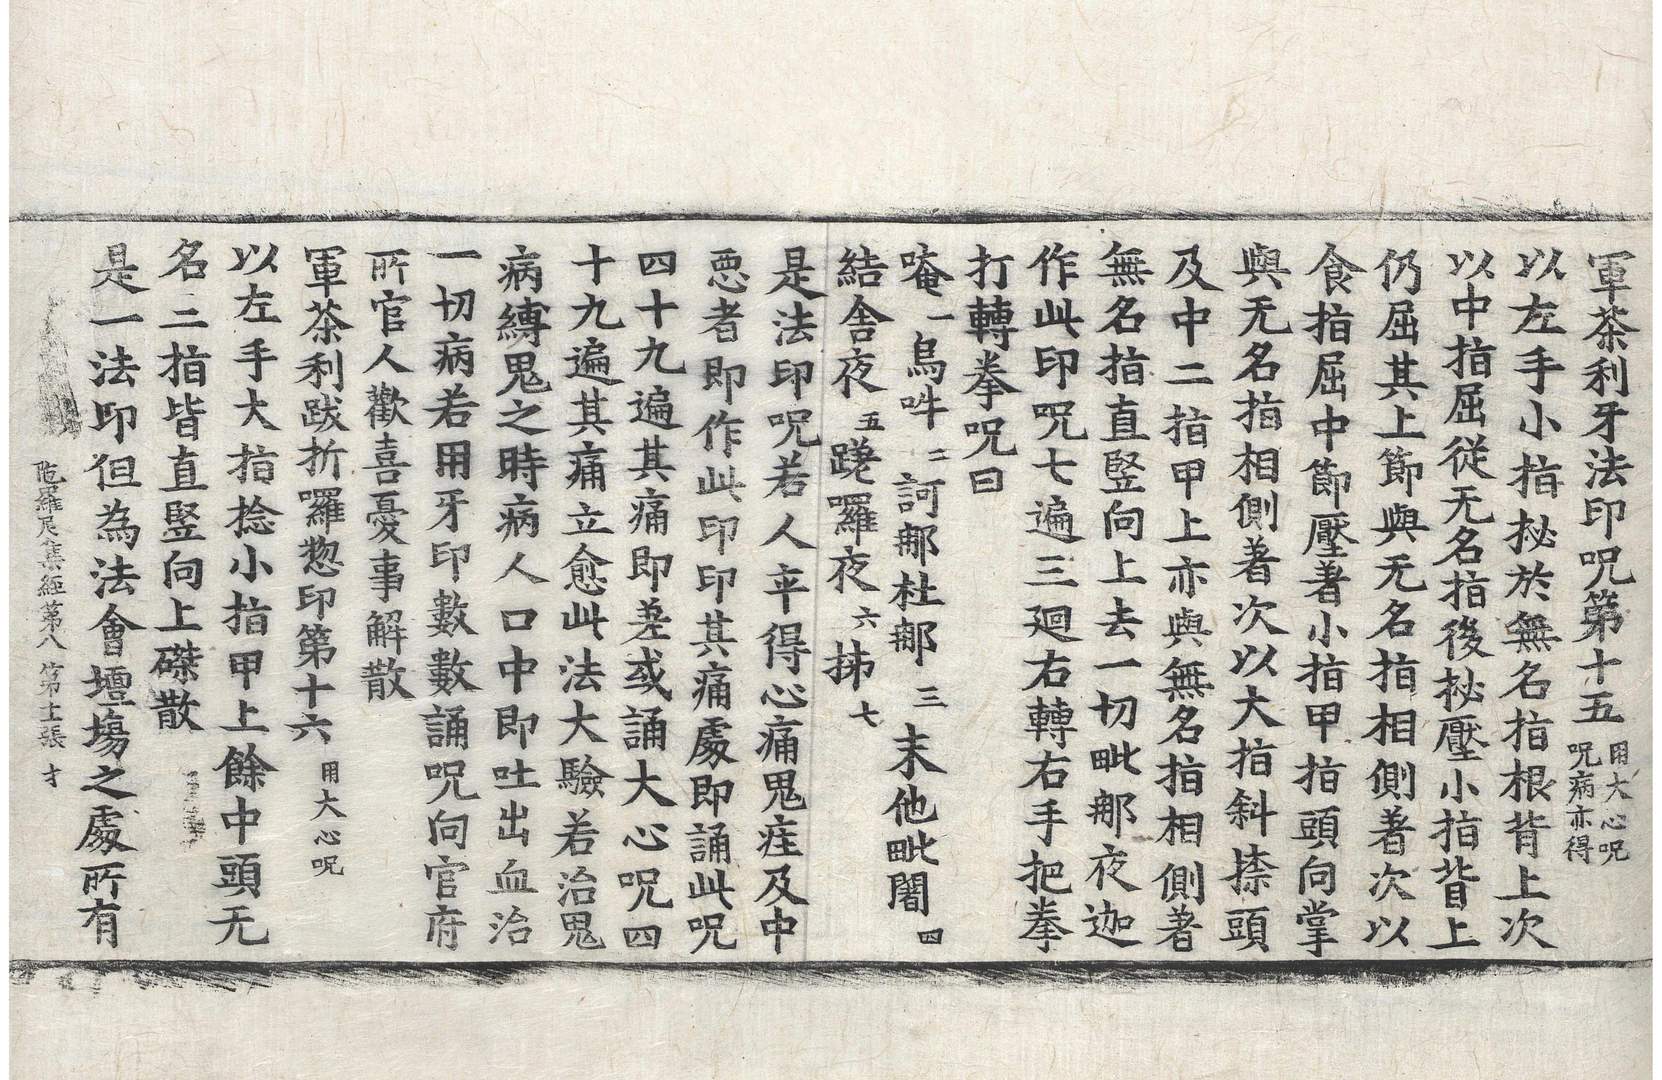 軍茶利牙法印呪第十五用大心呪呪病亦得
以左手小指㧙於無名指根背上次
以中指屈從无名指後㧙壓小指背上
仍屈其上節與无名指相側著次以
食指屈中節壓著小指甲指頭向掌
與无名指相側著次以大指斜捺頭
及中二指甲上亦與無名指相側著
無名指直竪向上去一切毗那夜迦
作此印呪七遍三迴右轉右手把拳
打轉拳呪曰
唵一烏吽二訶那杜那三末他毗闍四
結舍夜五蹺囉夜六㧊七
是法印呪若人卒得心痛鬼疰及中
惡者即作此印印其痛處即誦此呪
四十九遍其痛即差或誦大心呪四
十九遍其痛立愈此法大驗若治鬼
病縛鬼之時病人口中即吐出血治
一切病若用牙印數數誦呪向官府
所官人歡喜憂事解散
軍茶利跋折囉惣印第十六用大心呪
以左手大指捻小指甲上餘中頭无
名二指皆直竪向上磔散
是一法印但為法會壇場之處所有
陁羅尼集經第八 第十二張 才